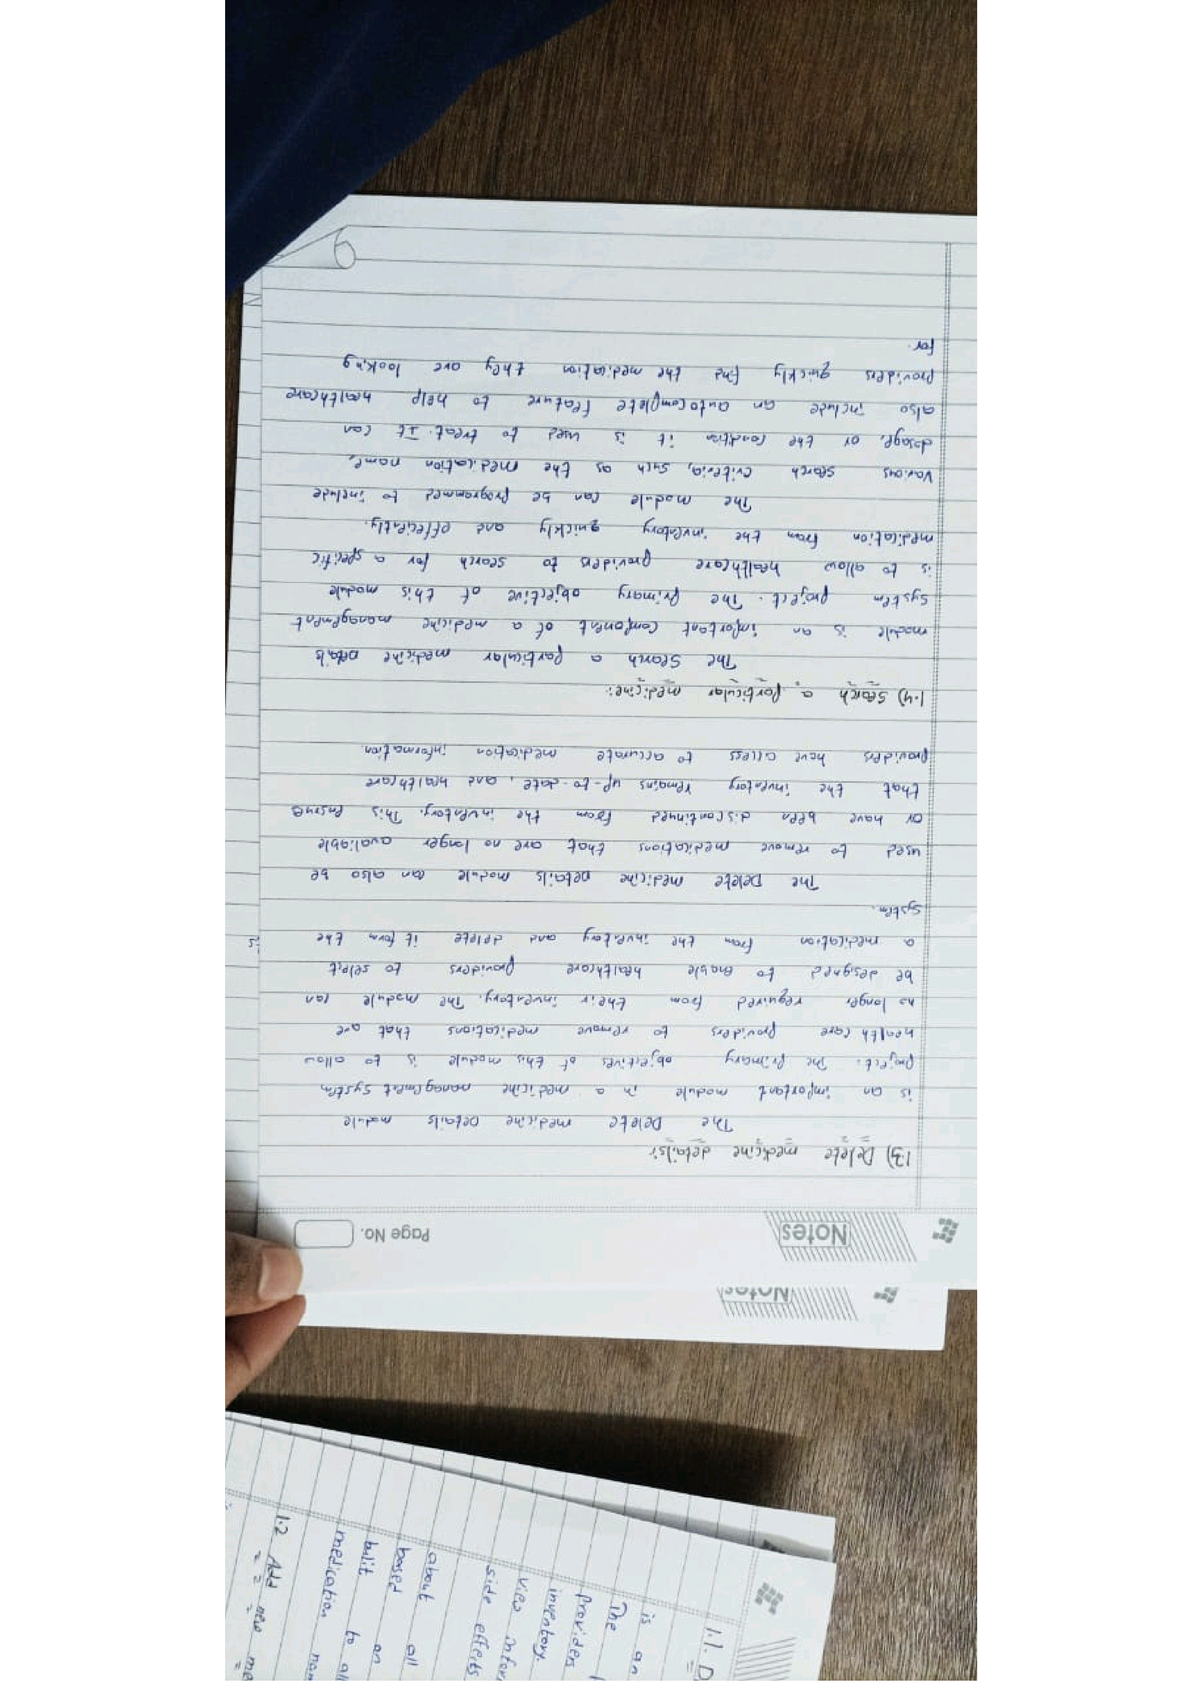 Notes
Notes
Page No.
1.3) Delete medicine details:
The Delete medicine Details module
is an important module in a medicine management system
project. The primary objectives of this module is to allow
health care providers to remove medications that are
no longer required from their inventory. The module can
be designed to enable healthcare providers to select
a medication from the inventory and delete it form the
system.
The Delete medicine Details module can also be
used to remove medications that are no longer avaliable
or have been discontinued from the inventory. This ensure
that the inventory remains up-to-date, and healthcare
providers have access to accurate medication information.
1.4) Search a particular medicine:
The Search a particular medicine details
module is an important component of a medicine management
system project. The primary objective of this module
is to allow healthcare providers to search for a specific
medication from the inventory quickly and effeciently.
The module can be programmed to include
various search criteria, such as the medication name,
dosage, or the condition it is used to treat. It can
also include an autocomplete feature to help healthcare
providers quickly find the medication they are looking
for.
1.1. D
is an
The
providers
inventory.
view infor
side effects
about all
based on
bulit to al
medication nam
1.2 Add new me